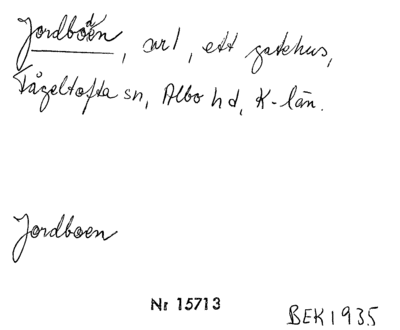 Jordboden, url, ett gatehus,
Fågeltofta sn, Albo hd, K-län.
Jordboen
Nr 15713
BEK 1935